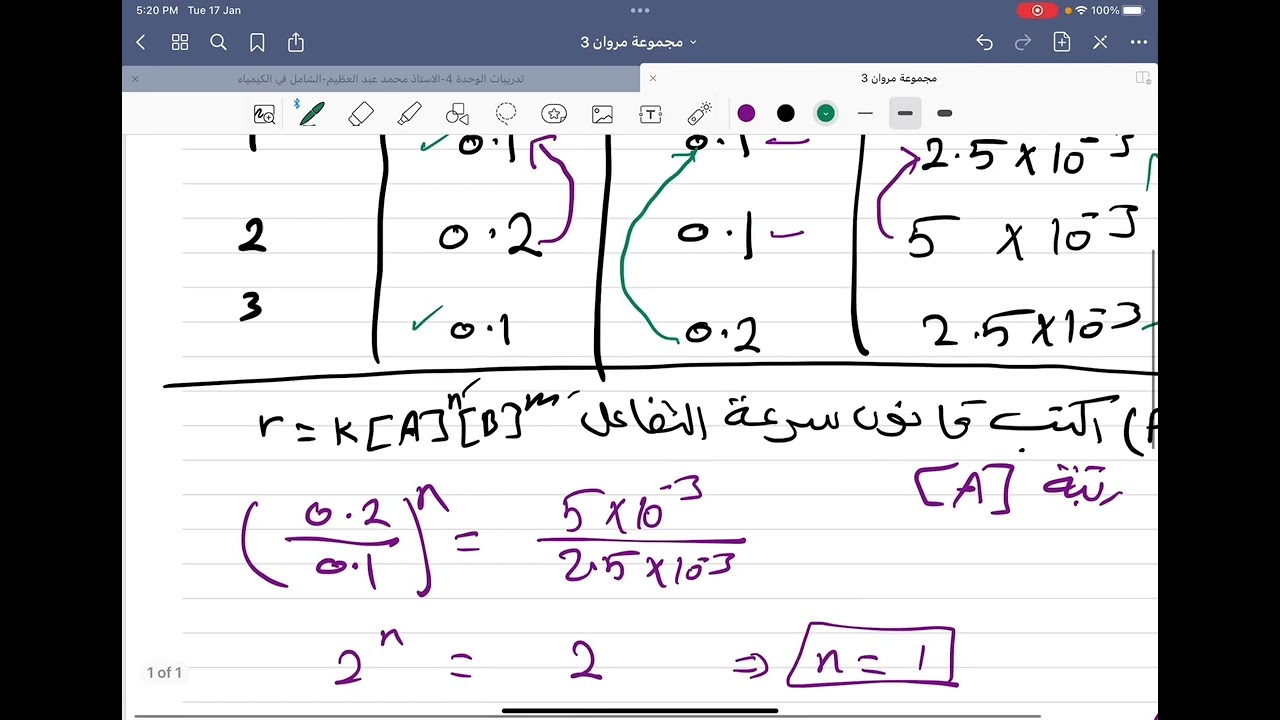 5:20 PM Tue 17 Jan 100%
مجموعة مروان 3
تدريبات الوحدة 4-الاستاذ محمد عبد العظيم-الشامل في الكيمياء
مجموعة مروان 3
1 0.1 0.1 2.5 × 10⁻³
2 0.2 0.1 5 × 10⁻³
3 0.1 0.2 2.5 × 10⁻³
اكتب قانون سرعة التفاعل r = K[A]ⁿ[B]ᵐ
رتبة [A]
(0.2/0.1)ⁿ = 5 × 10⁻³ / 2.5 × 10⁻³
2ⁿ = 2 ⇒ n = 1
1 of 1